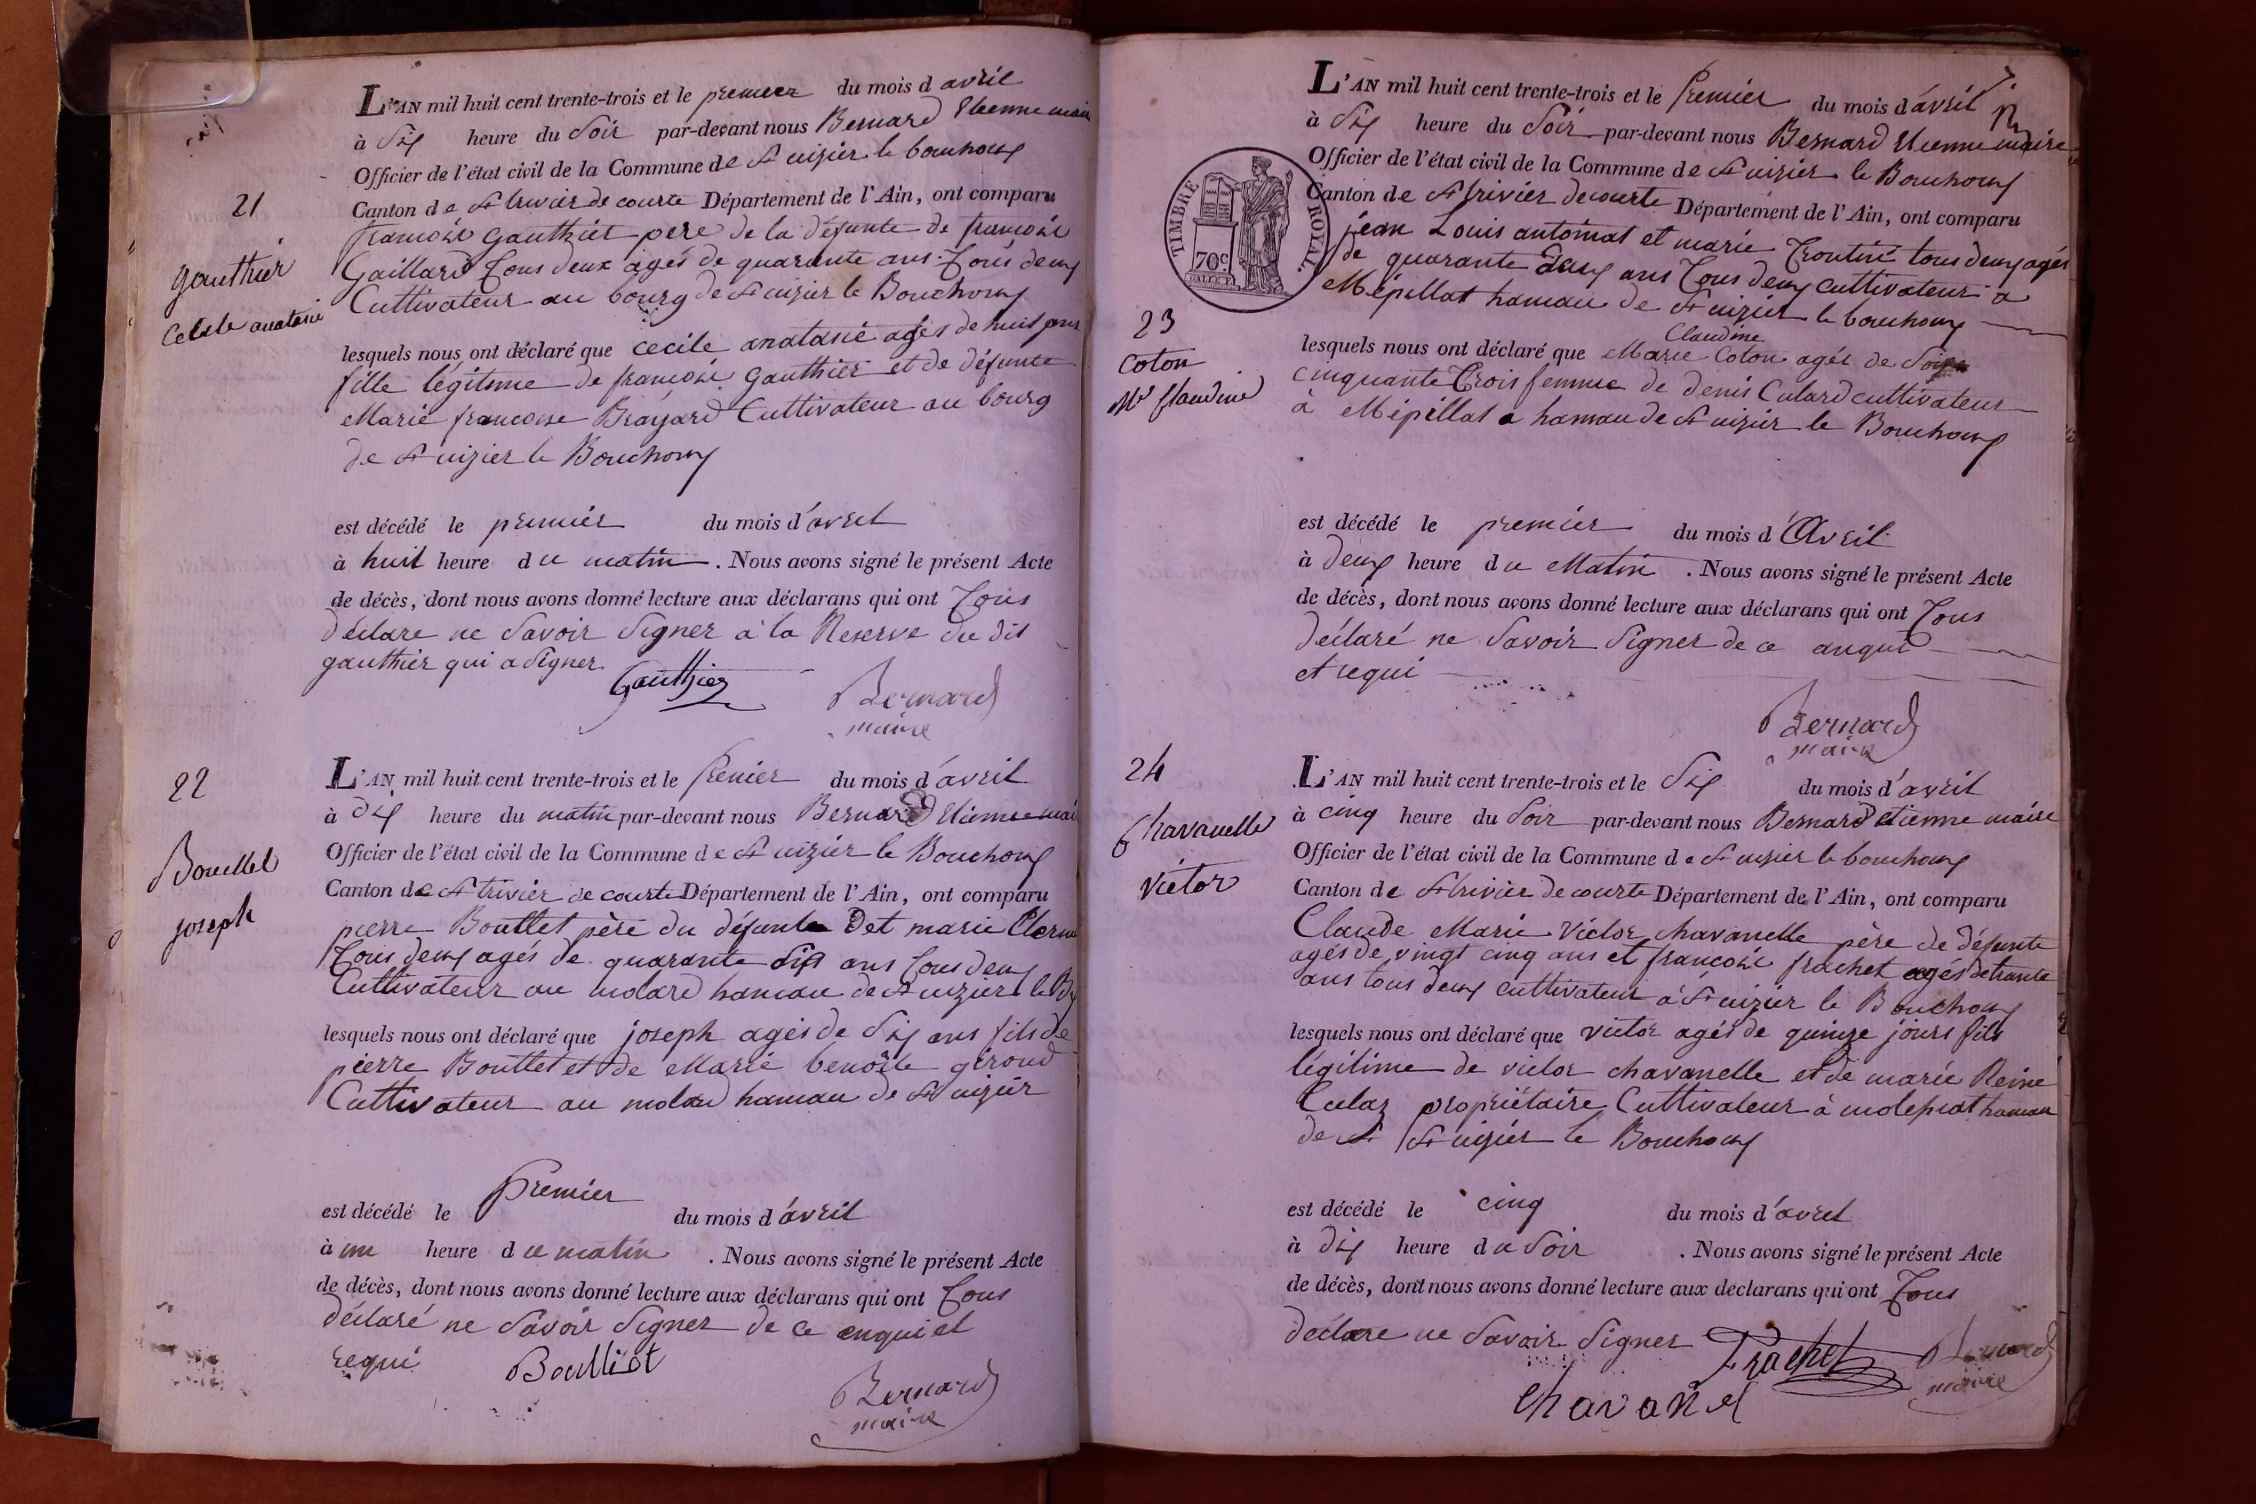 L'AN mil huit cent trente-trois et le premier du mois d avril
à Six heure du Soir par-devant nous Bernard Etienne maire
Officier de l'état civil de la Commune de St nizier le bouchoux
Canton de St trivier de courte Département de l'Ain, ont comparu
21
francoise gauthier pere de la défunte de francoise
Gaillard Tous deux agés de quarante ans Tous deux
Cultivateur au bourg de St nizier le Bouchoux
gauthier
anatasie
lesquels nous ont déclaré que cecile anatasie agés de huit jours
fille légitime de francoise gauthier et de défunte
Marie francoise Brayard Cultivateur au bourg
de St nizier le Bouchoux
est décédé le premier du mois d'avril
à huit heure du matin. Nous avons signé le présent Acte
de décès, dont nous avons donné lecture aux déclarans qui ont Tous
déclare ne Savoir Signer a la Reserve du dit
gauthier qui a Signer.
Gauthier
Bernard
maire
22
Bouillet
joseph
L'AN mil huit cent trente-trois et le Premier du mois d'avril
à dix heure du matin par-devant nous Bernard Etienne mai
Officier de l'état civil de la Commune de St nizier le Bouchoux
Canton de St trivier de courte Département de l'Ain, ont comparu
pierre Bouillet père du défunte et marie
Tous deux agés de quarante ans Tous deux
Cultivateur au molard hamau de St nizier le B
lesquels nous ont déclaré que joseph agés de Six ans fils de
pierre Bouillet et de Marie benoite giroud
Cultivateur au molard hamau de St nizier
est décédé le Premier du mois d'avril
à un heure du matin. Nous avons signé le présent Acte
de décès, dont nous avons donné lecture aux déclarans qui ont Tous
déclaré ne Savoir Signer de ce enqui et
requi
Boulliot
Bernard
maire
L'AN mil huit cent trente-trois et le Premier du mois d'avril
à Six heure du Soir par-devant nous Bernard Etienne maire
Officier de l'état civil de la Commune de St nizier le Bouchoux
Canton de St trivier de courte Département de l'Ain, ont comparu
TIMBRE ROYAL.
70c
jean Louis antoinat et marie tous deux agés
de quarante deux ans Tous deux cultivateur a
Mépillat hamau de St nizier le bouchoux
23
coton
Me Claudine
Claudine
lesquels nous ont déclaré que Marie Coton agés de
cinquante Trois femme de denis Culard cultivateur
à Mépillat a hamau de St nizier le Bouchoux
est décédé le premier du mois d'Avril
à deux heure du Matin. Nous avons signé le présent Acte
de décès, dont nous avons donné lecture aux déclarans qui ont Tous
déclaré ne Savoir Signer de ce anqui
et requi
Bernard
maire
24
Chavanelle
victor
L'AN mil huit cent trente-trois et le Six du mois d'avril
à cinq heure du Soir par-devant nous Bernard etienne maire
Officier de l'état civil de la Commune de St nizier le bouchoux
Canton de St trivier de courte Département de l'Ain, ont comparu
Claude Marie Victor chavanelle père de défunte
agés de vingt cinq ans et francoise frachet agés de trante
ans tous deux cultivateur à St nizier le Bouchoux
lesquels nous ont déclaré que victor agés de quinze jours fils
légitime de victor chavanelle et de marie Reine
Culaz propriétaire Cultivateur à molepiat hamau
de St nizier le Bouchoux
est décédé le cinq du mois d'avril
à dix heure du Soir. Nous avons signé le présent Acte
de décès, dont nous avons donné lecture aux declarans qui ont Tous
déclare ne Savoir Signer
Frachet
Bernard
maire
Chavanel